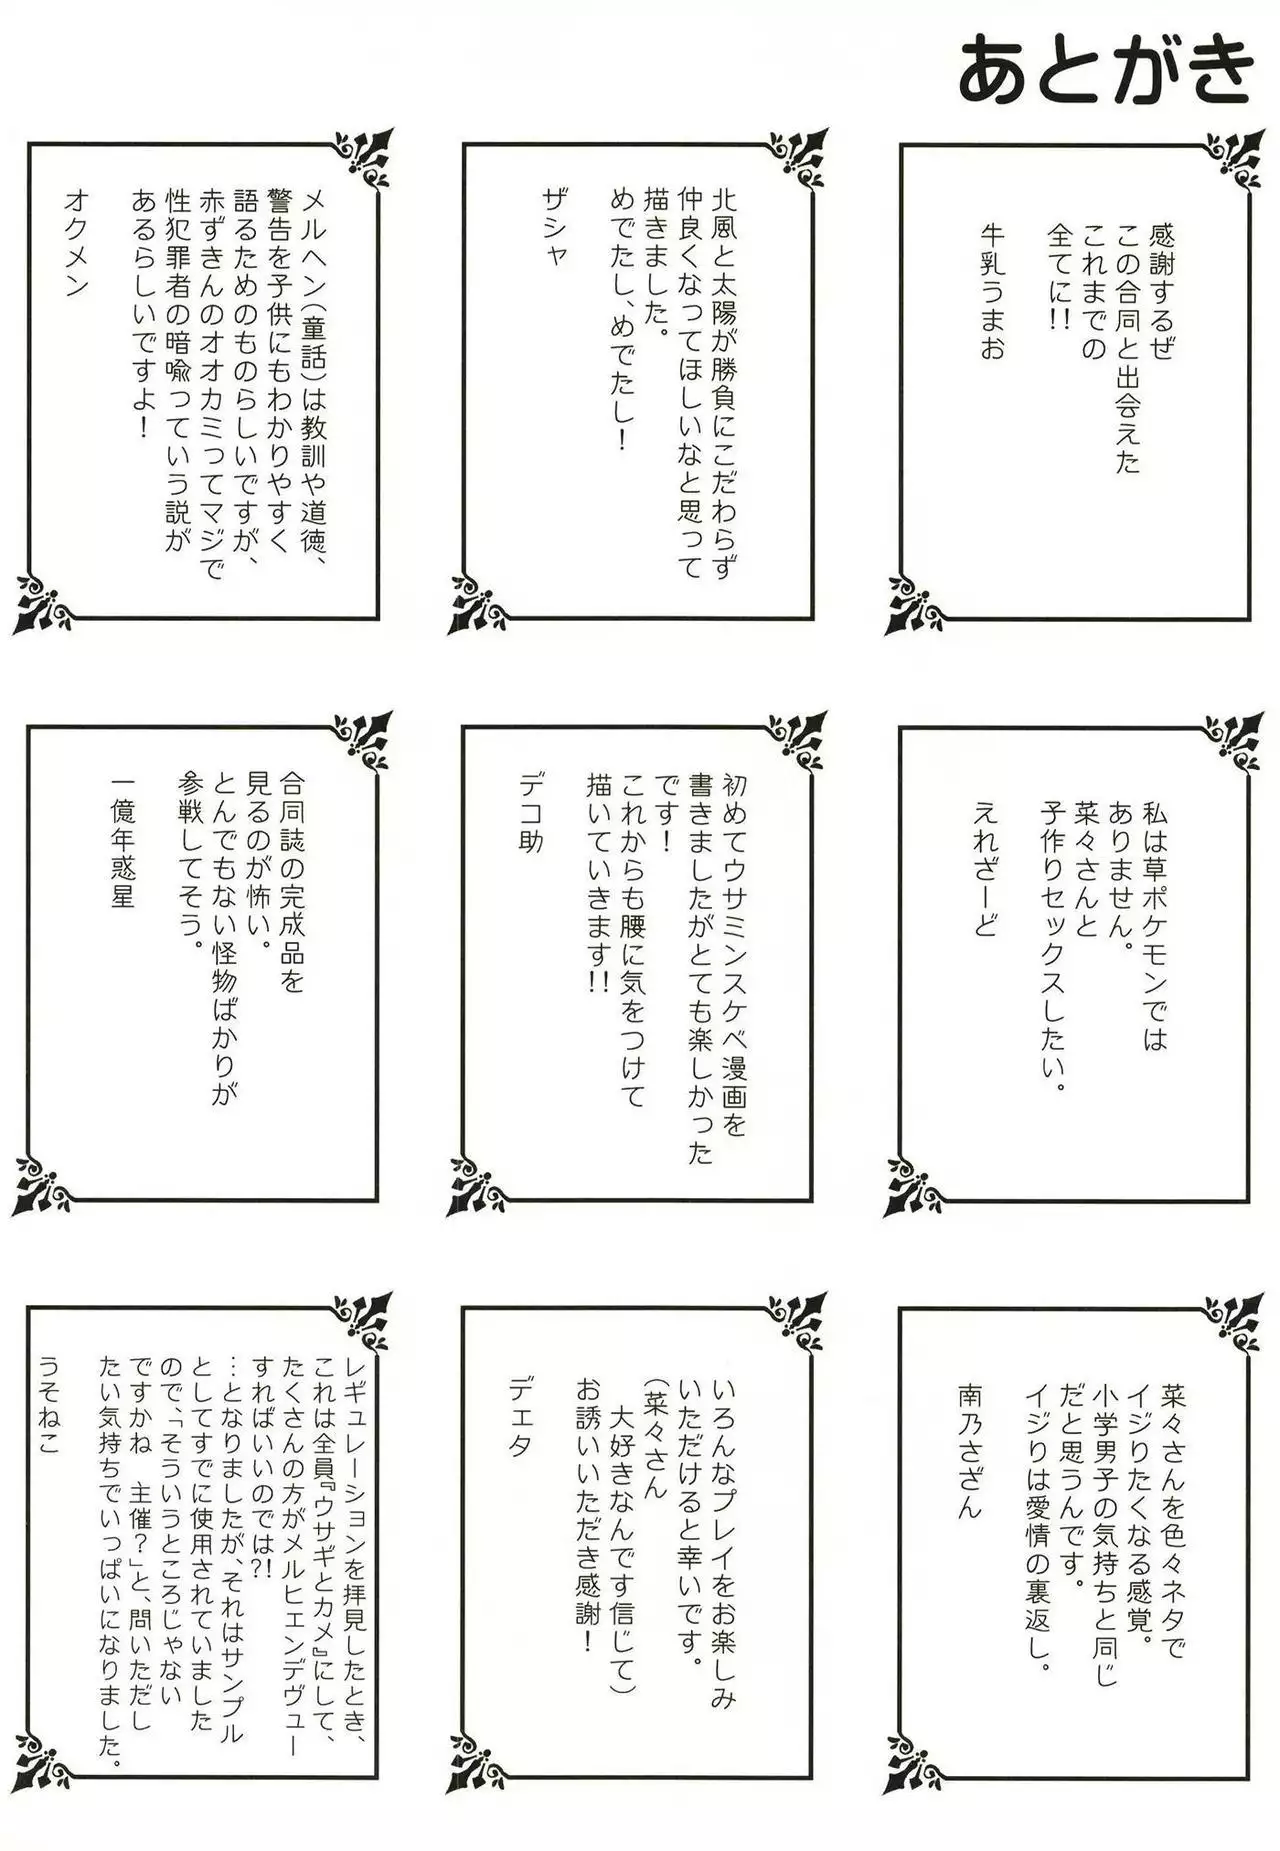 あとがき
感謝するぜ
この合同と出会えた
これまでの
全てに!!
牛乳うまお
北風と太陽が勝負にこだわらず
仲良くなってほしいなと思って
描きました。
めでたし、めでたし！
ザシャ
メルヘン（童話）は教訓や道徳、
警告を子供にもわかりやすく
語るためのものらしいですが、
赤ずきんのオオカミってマジで
性犯罪者の暗喩っていう説が
あるらしいですよ！
オクメン
私は草ポケモンでは
ありません。
菜々さんと
子作りセックスしたい。
えれざーど
初めてウサミンスケベ漫画を
書きましたがとても楽しかった
です！
これからも腰に気をつけて
描いていきます!!
デコ助
合同誌の完成品を
見るのが怖い。
とんでもない怪物ばかりが
参戦してそう。
一億年惑星
菜々さんを色々ネタで
イジりたくなる感覚。
小学男子の気持ちと同じ
だと思うんです。
イジりは愛情の裏返し。
南乃さざん
いろんなプレイをお楽しみ
いただけると幸いです。
（菜々さん
大好きなんです信じて）
お誘いいただき感謝！
デエタ
レギュレーションを拝見したとき、
これは全員『ウサギとカメ』にして、
たくさんの方がメルヒェンデヴュー
すればいいのでは?!
…となりましたが、それはサンプル
としてすでに使用されていました
ので、「そういうところじゃない
ですかね　主催？」と、問いただし
たい気持ちでいっぱいになりました。
うそねこ